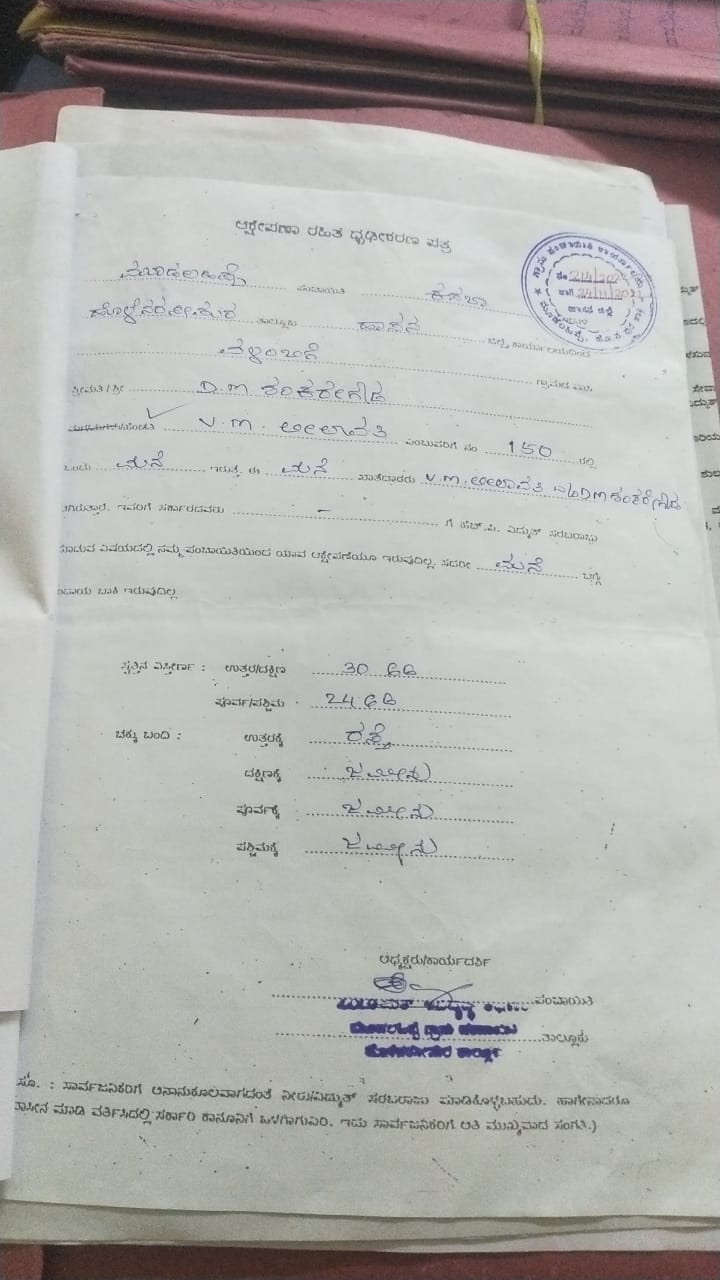 ಆಕ್ಷೇಪಣಾ ರಹಿತ ಧೃಢೀಕರಣ ಪತ್ರ
ಪಂಚಾಯಿತಿ ಕಸಬಾ
ಹೊಳೆನರಸೀಪುರ ತಾಲ್ಲೂಕು ಹಾಸನ ಜಿಲ್ಲೆ ಕಾರ್ಯಾಲಯದಿಂದ
ಗ್ರಾಮದ ವಾಸಿ
ಶ್ರೀಮತಿ/ಶ್ರೀ D.M ಶಂಕರೇಗೌಡ
V.M. ಲೀಲಾವತಿ ಎಂಬುವರಿಗೆ ನಂ 150 ರಲ್ಲಿ
ಒಂದು ಮನೆ ಇರುತ್ತೆ ಈ ಮನೆ ಖಾತೆದಾರರು V.M. ಲೀಲಾವತಿ W/o D M ಶಂಕರೇಗೌಡ
ಆಗಿರುತ್ತಾರೆ. ಇವರಿಗೆ ಸರ್ಕಾರದವರು – ಗೆ ಹೆಚ್.ಪಿ. ವಿದ್ಯುತ್ ಸರಬರಾಜು
ಮಾಡುವ ವಿಷಯದಲ್ಲಿ ನಮ್ಮ ಪಂಚಾಯಿತಿಯಿಂದ ಯಾವ ಆಕ್ಷೇಪಣೆಯೂ ಇರುವುದಿಲ್ಲ. ಸದರೀ ಮನೆ ಬಗ್ಗೆ
ಕಂದಾಯ ಬಾಕಿ ಇರುವುದಿಲ್ಲ
ಸ್ವತ್ತಿನ ವಿಸ್ತೀರ್ಣ : ಉತ್ತರ/ದಕ್ಷಿಣ 30 ಅಡಿ
ಪೂರ್ವ/ಪಶ್ಚಿಮ 24 ಅಡಿ
ಚಕ್ಕು ಬಂದಿ : ಉತ್ತರಕ್ಕೆ ರಸ್ತೆ
ದಕ್ಷಿಣಕ್ಕೆ ಜಮೀನು
ಪೂರ್ವಕ್ಕೆ ಜಮೀನು
ಪಶ್ಚಿಮಕ್ಕೆ ಜಮೀನು
ಅಧ್ಯಕ್ಷರು/ಕಾರ್ಯದರ್ಶಿ
ಪಂಚಾಯಿತಿ
ತಾಲ್ಲೂಕು
ಸೂ. : ಸಾರ್ವಜನಿಕರಿಗೆ ಅನಾನುಕೂಲವಾಗದಂತೆ ನೀರು/ವಿದ್ಯುತ್ ಸರಬರಾಜು ಮಾಡಿಕೊಳ್ಳಬಹುದು. ಹಾಗೇನಾದರೂ
ಮಾಡಿ ವರ್ತಿಸಿದಲ್ಲಿ ಸರ್ಕಾರಿ ಕಾನೂನಿಗೆ ಒಳಗಾಗುವಿರಿ. ಇದು ಸಾರ್ವಜನಿಕರಿಗೆ ಅತಿ ಮುಖ್ಯವಾದ ಸಂಗತಿ.)